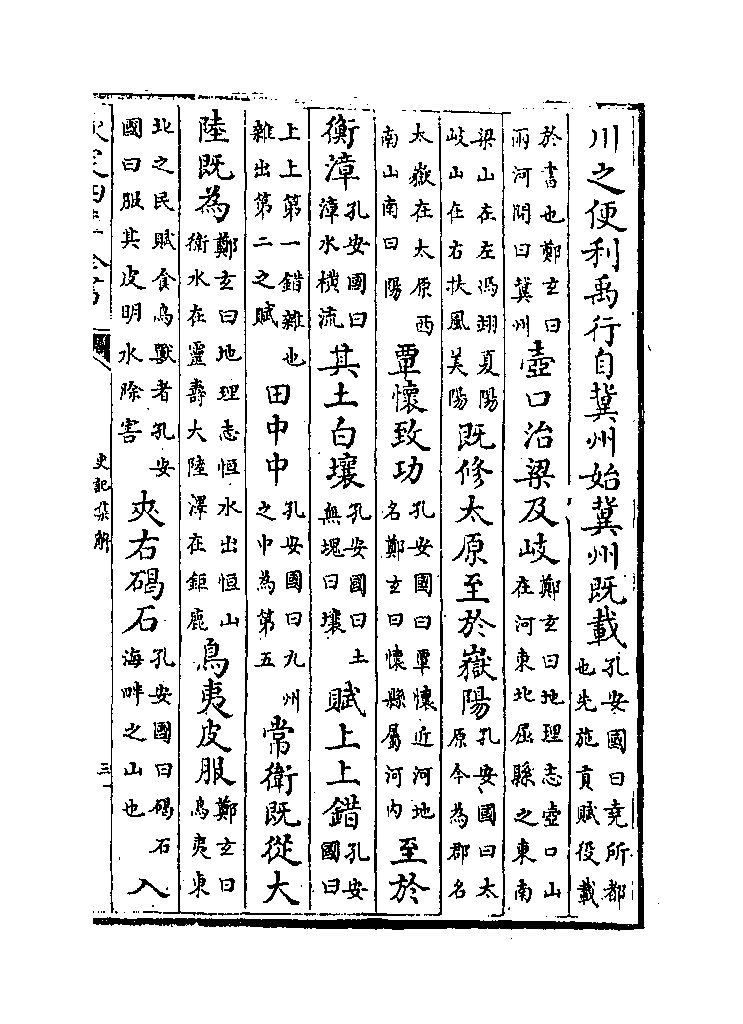 川之便利禹行自冀州始冀州既載孔安國曰堯所都也先施貢賦役載
於書也鄭玄曰兩河間曰冀州壺口治梁及岐鄭玄曰地理志壺口山在河東北屈縣之東南
梁山在左馮翊夏陽岐山在右扶風美陽既修太原至於嶽陽孔安國曰太原今為郡名
太嶽在太原西南山南曰陽覃懷致功孔安國曰覃懷近河地名鄭玄曰懷縣屬河内至於
衡漳孔安國曰漳水橫流其土白壤孔安國曰土無塊曰壤賦上上錯孔安國曰
上上第一錯雜也雜出第二之賦田中中孔安國曰九州之中為第五常衛既從大
陸既為鄭玄曰地理志恒水出恒山衛水在靈壽大陸澤在鉅鹿鳥夷皮服鄭玄曰鳥夷東
北之民賦食鳥獸者孔安國曰服其皮明水除害夾右碣石孔安國曰碣石海畔之山也入
欽定四庫全書
史記集解
三